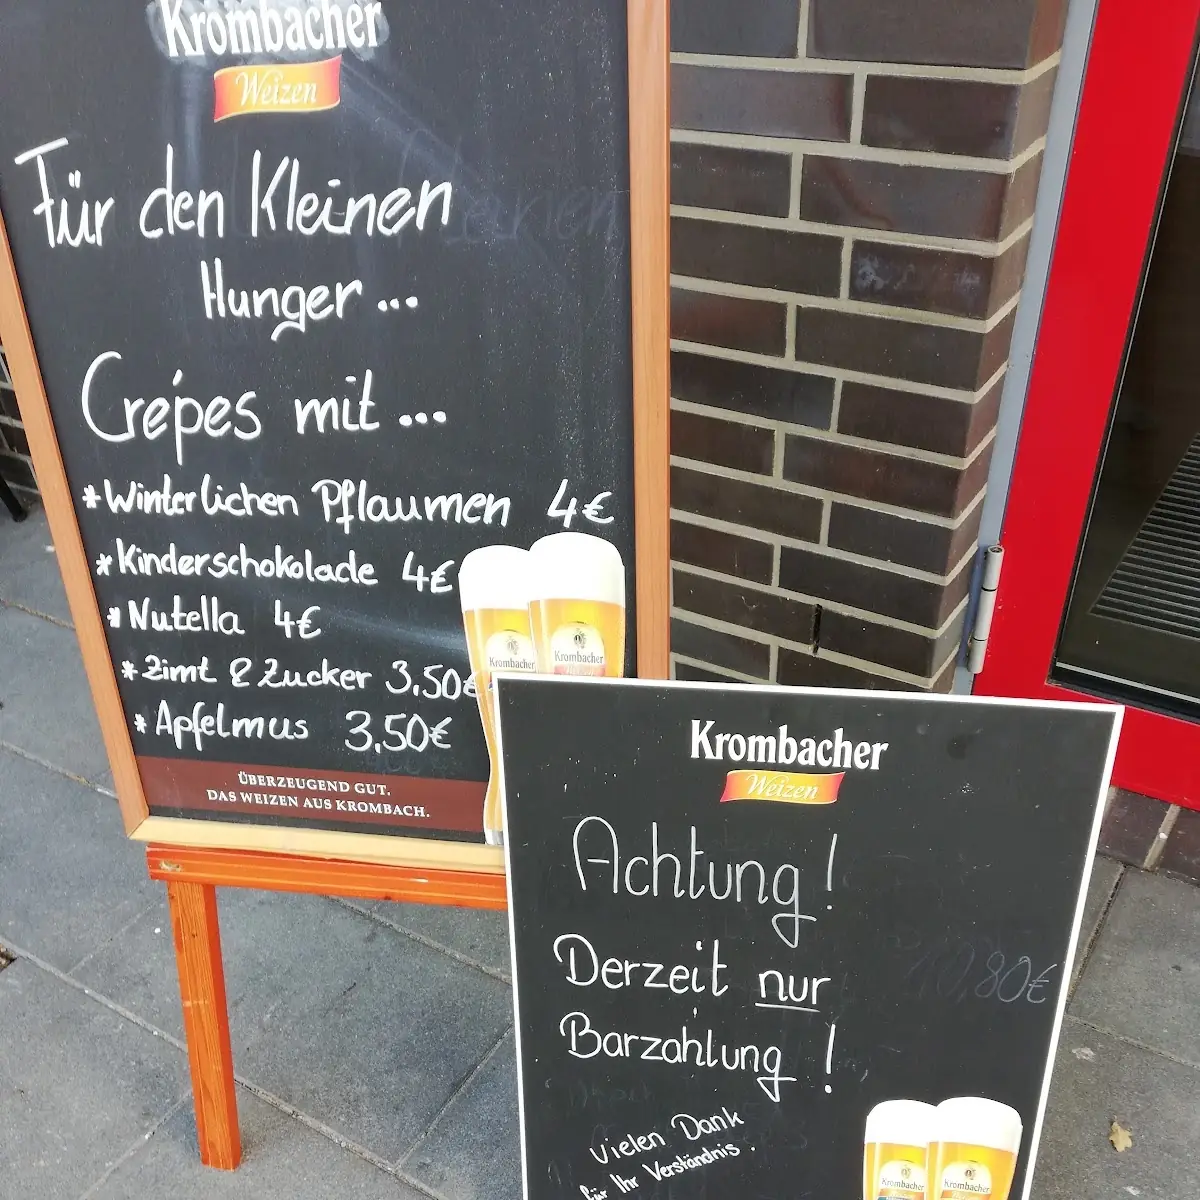 Krombacher
Weizen
Für den Kleinen
Hunger...
Crépes mit...
*Winterlichen Pflaumen 4€
*Kinderschokolade 4€
*Nutella 4€
*Zimt & Zucker 3,50€
*Apfelmus 3,50€
Krombacher
Krombacher
ÜBERZEUGEND GUT.
DAS WEIZEN AUS KROMBACH.
Krombacher
Weizen
Achtung!
Derzeit nur
Barzahlung!
10,80€
Vielen Dank
für Ihr Verständnis.
Krombacher
Krombacher